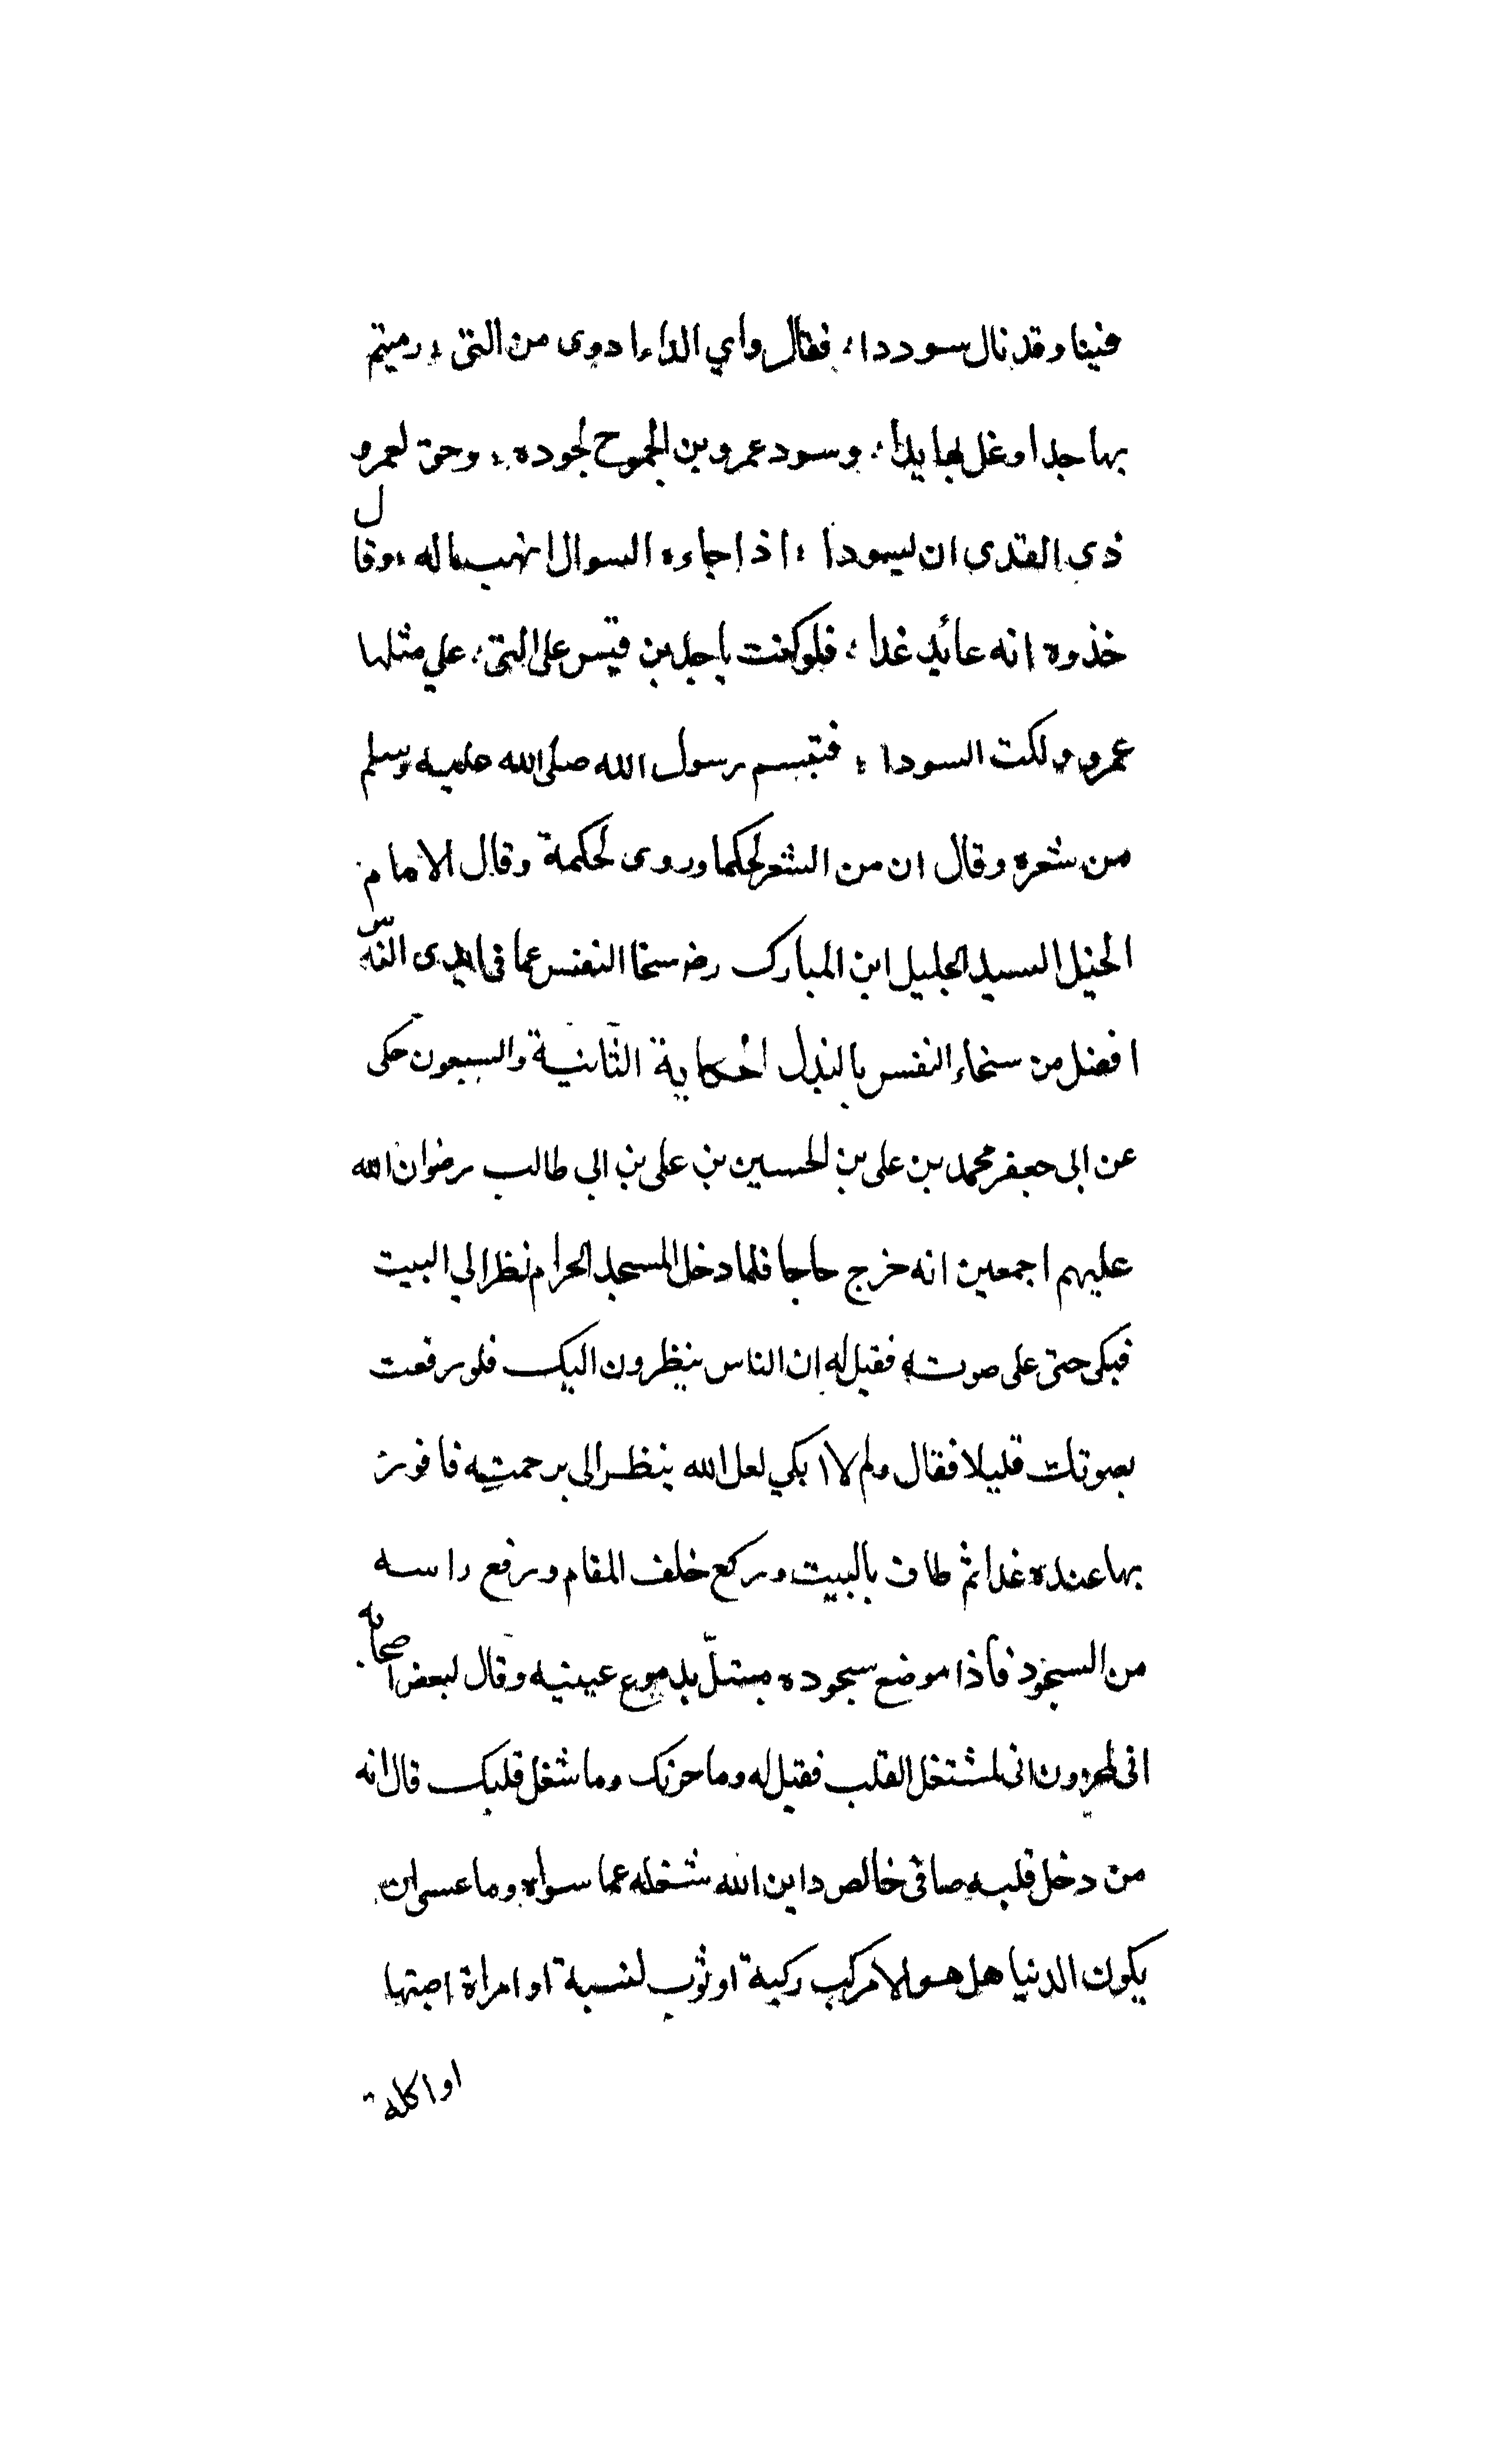 فينا وقد نال سوددا ؛ فقال واي الداء ادوى من التى ؛ رميتم
بها جدا وغل بها يدا ؛ وسود عمرو بن الجموح لجوده ؛ وحق لعمرو
ذى القدى ان ليسودا ؛ اذا جاءه السوال انهب ماله ؛ وقال
خذوه انه عائد غدا ؛ فلو كنت يا جد بن قيس على التى ؛ علي مثلها
عمرو ولكت السودا ؛ فتبسم رسول الله صلى الله عليه وسلم
من شعره وقال ان من الشعر لحكما وروى لحكمة وقال الامام
الحنبل السيد الجليل ابن المبارك رض سخا النفس عما فى ايدى الناس
افضل من سخاء النفس بالبذل الحكاية الثانية والسبعون حكى
عن ابى جعفر محمد بن على بن الحسين بن على بن ابي طالب رضوان الله
عليهم اجمعين انه خرج حاجا فلما دخل المسجد الحرام نظر الي البيت
فبكى حتى على صوته فقيل له ان الناس ينظرون اليك فلو رفعت
بصوتك قليلا فقال ولم لا ابكي لعل الله ينظر الى برحمته فافوز
بها عنده غدا ثم طاف بالبيت وركع خلف المقام ورفع راسه
من السجود فاذا موضع سجوده مبتلّ بدموع عينيه وقال لبعض اصحابه
انى لمحزون انى لمشتغل القلب فقيل له وما حزنك وما شغل قلبك قال انه
من دخل قلبه صافى خالص دين الله شغله عما سواه وما عسى ان
يكون الدنيا هل هو الا مركب ركبة او ثوب لبسة او امراة اصبتها
او اكلة